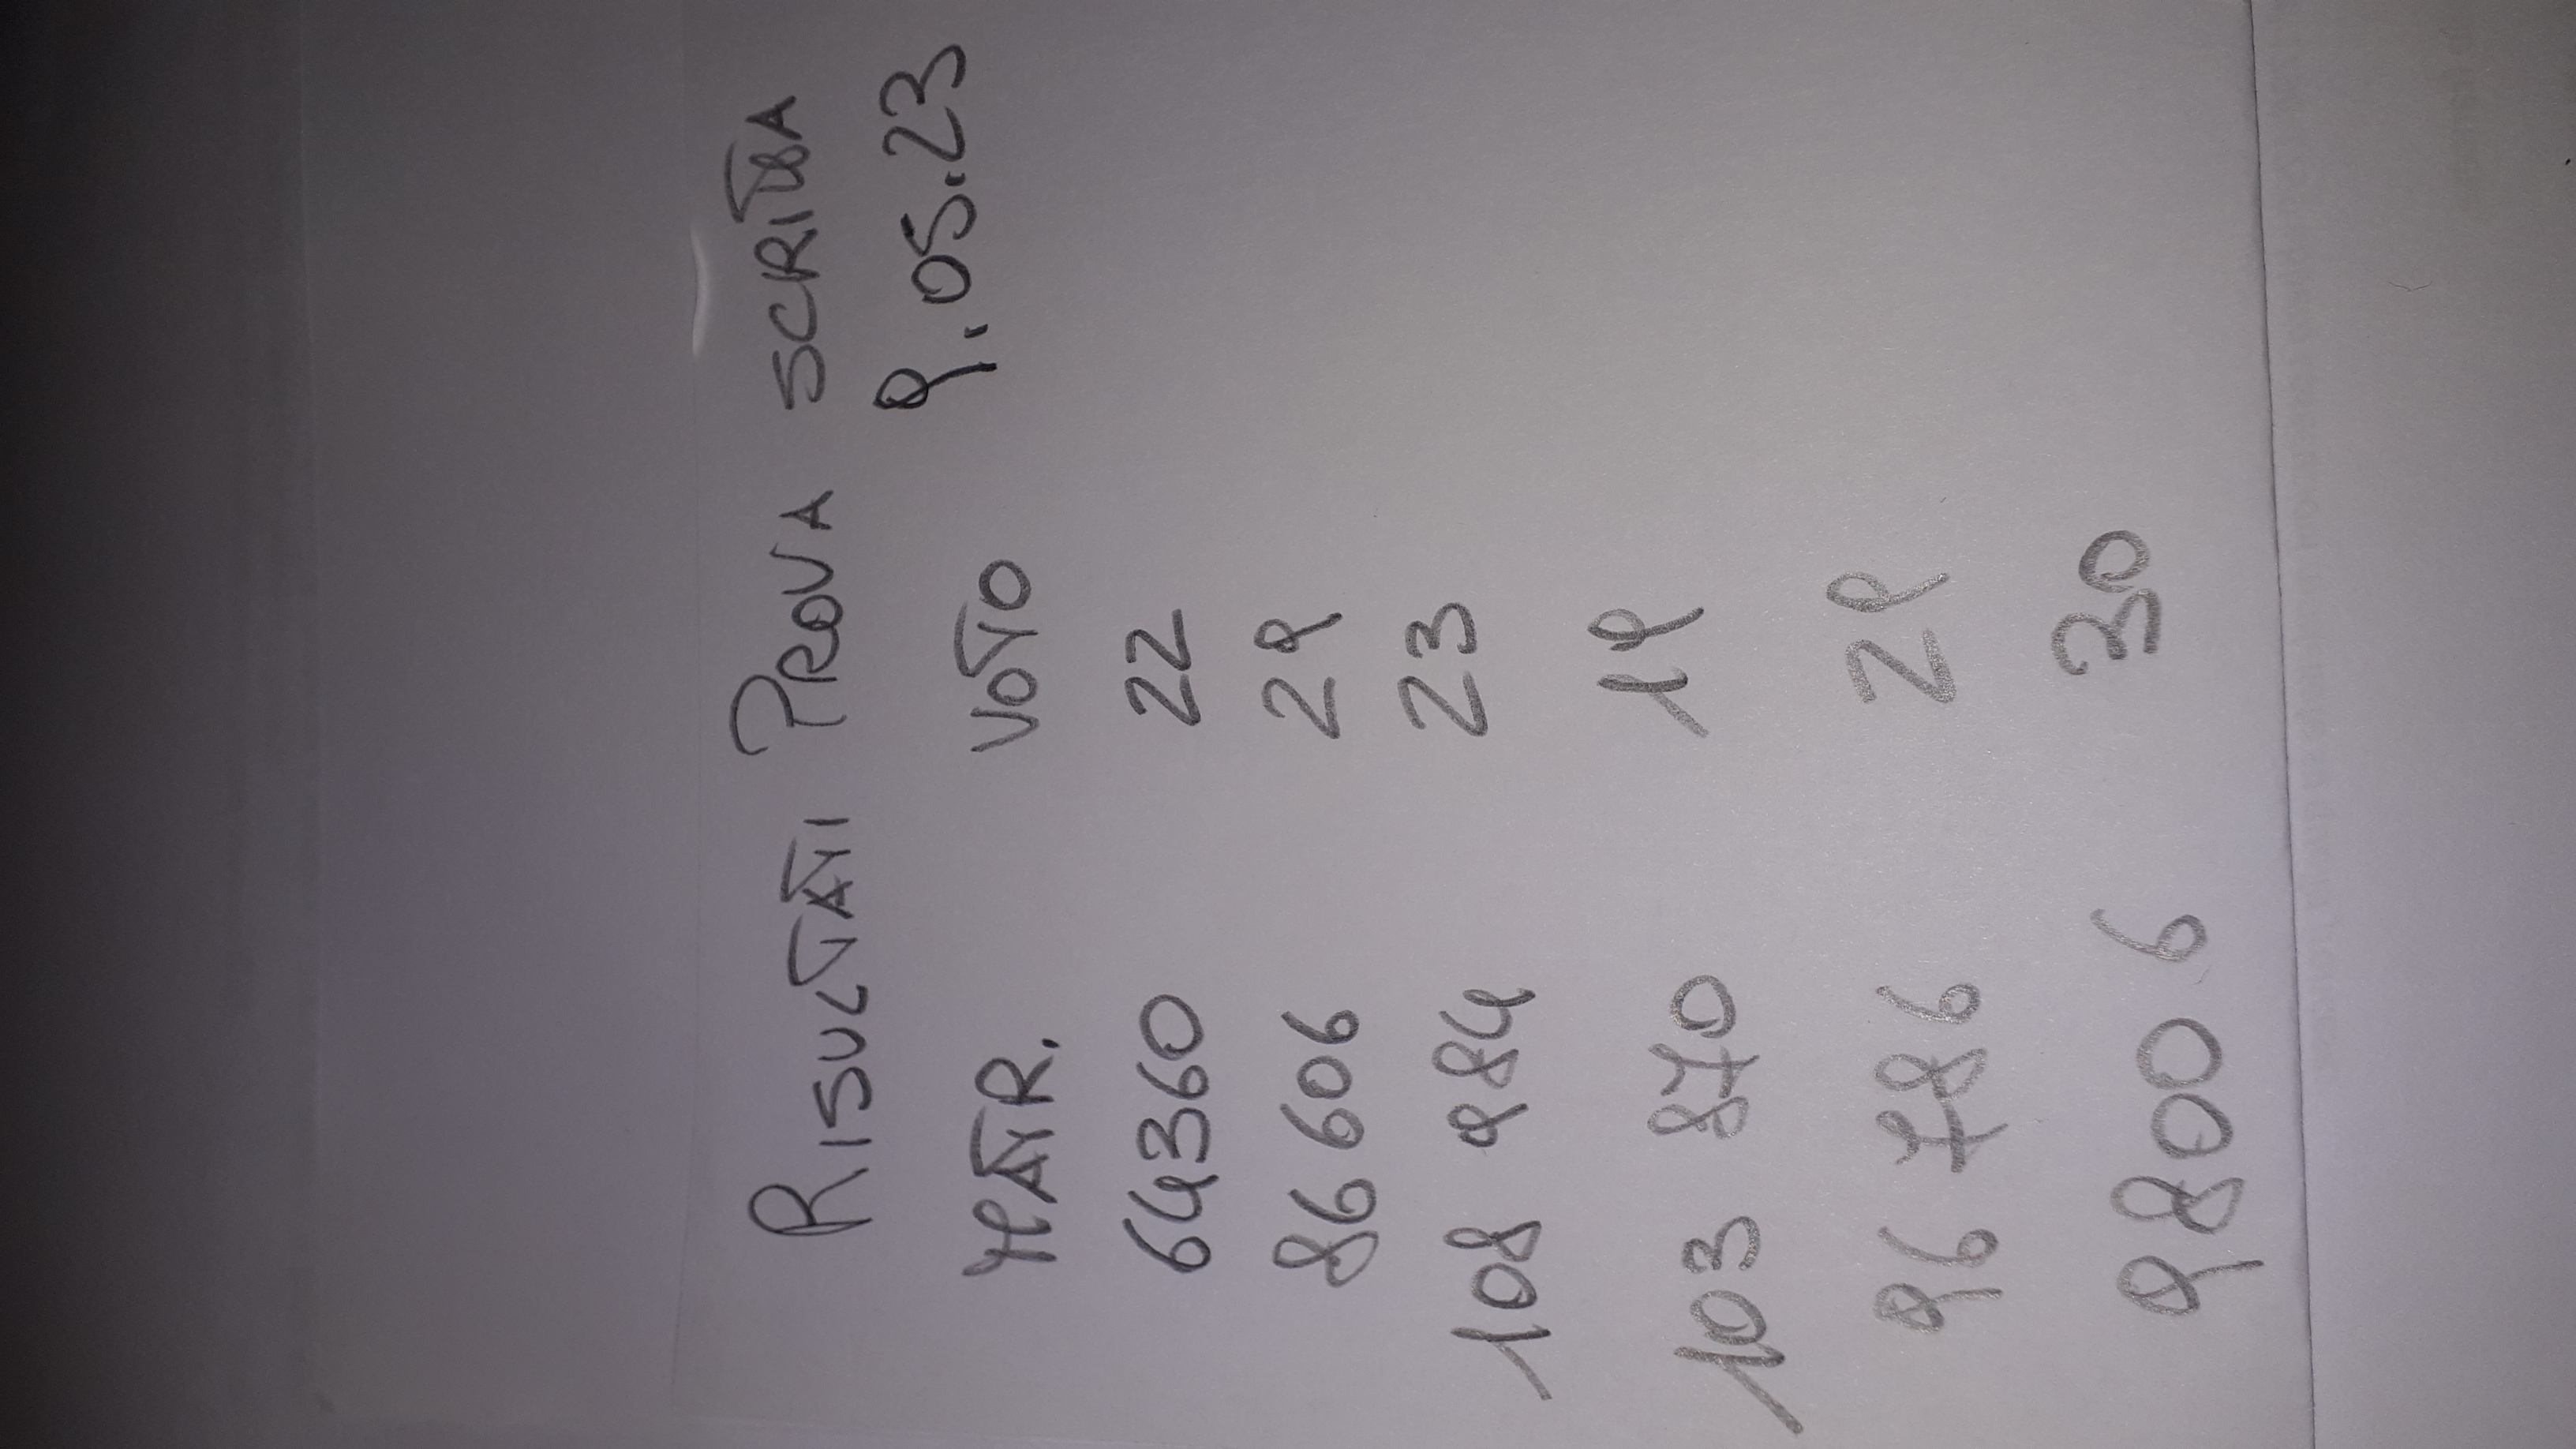 RISULTATI PROVA SCRITTA
9.05.23
MATR. VOTO
64360 22
86 606 29
108 984 23
103 870 19
96 786 29
9800 6 30